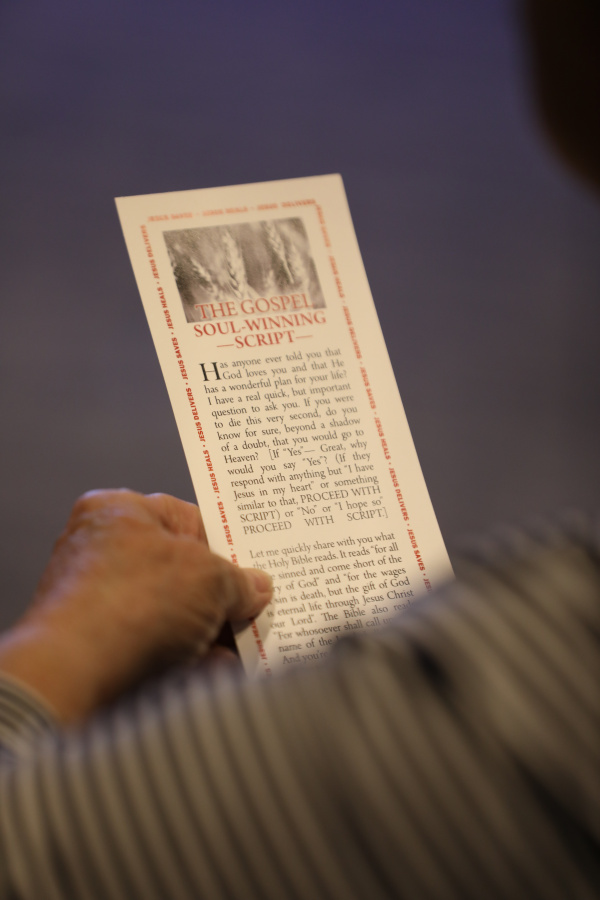 JESUS SAVES • JESUS HEALS • JESUS DELIVERS
THE GOSPEL
SOUL-WINNING
—SCRIPT—
Has anyone ever told you that
God loves you and that He
has a wonderful plan for your life?
I have a real quick, but important
question to ask you. If you were
to die this very second, do you
know for sure, beyond a shadow
of a doubt, that you would go to
Heaven? [If “Yes”— Great, why
would you say “Yes”? (If they
respond with anything but “I have
Jesus in my heart” or something
similar to that, PROCEED WITH
SCRIPT) or “No” or “I hope so”
PROCEED WITH SCRIPT.]
Let me quickly share with you what
the Holy Bible reads. It reads “for all
sinned and come short of the
of God” and “for the wages
sin is death, but the gift of God
eternal life through Jesus Christ
our Lord”. The Bible also
“For whosoever shall call
name of the
And
JESUS DELIVERS • JESUS HEALS • JESUS SAVES • JESUS DELIVERS • JESUS HEALS • JESUS SAVES
JESUS DELIVERS • JESUS SAVES